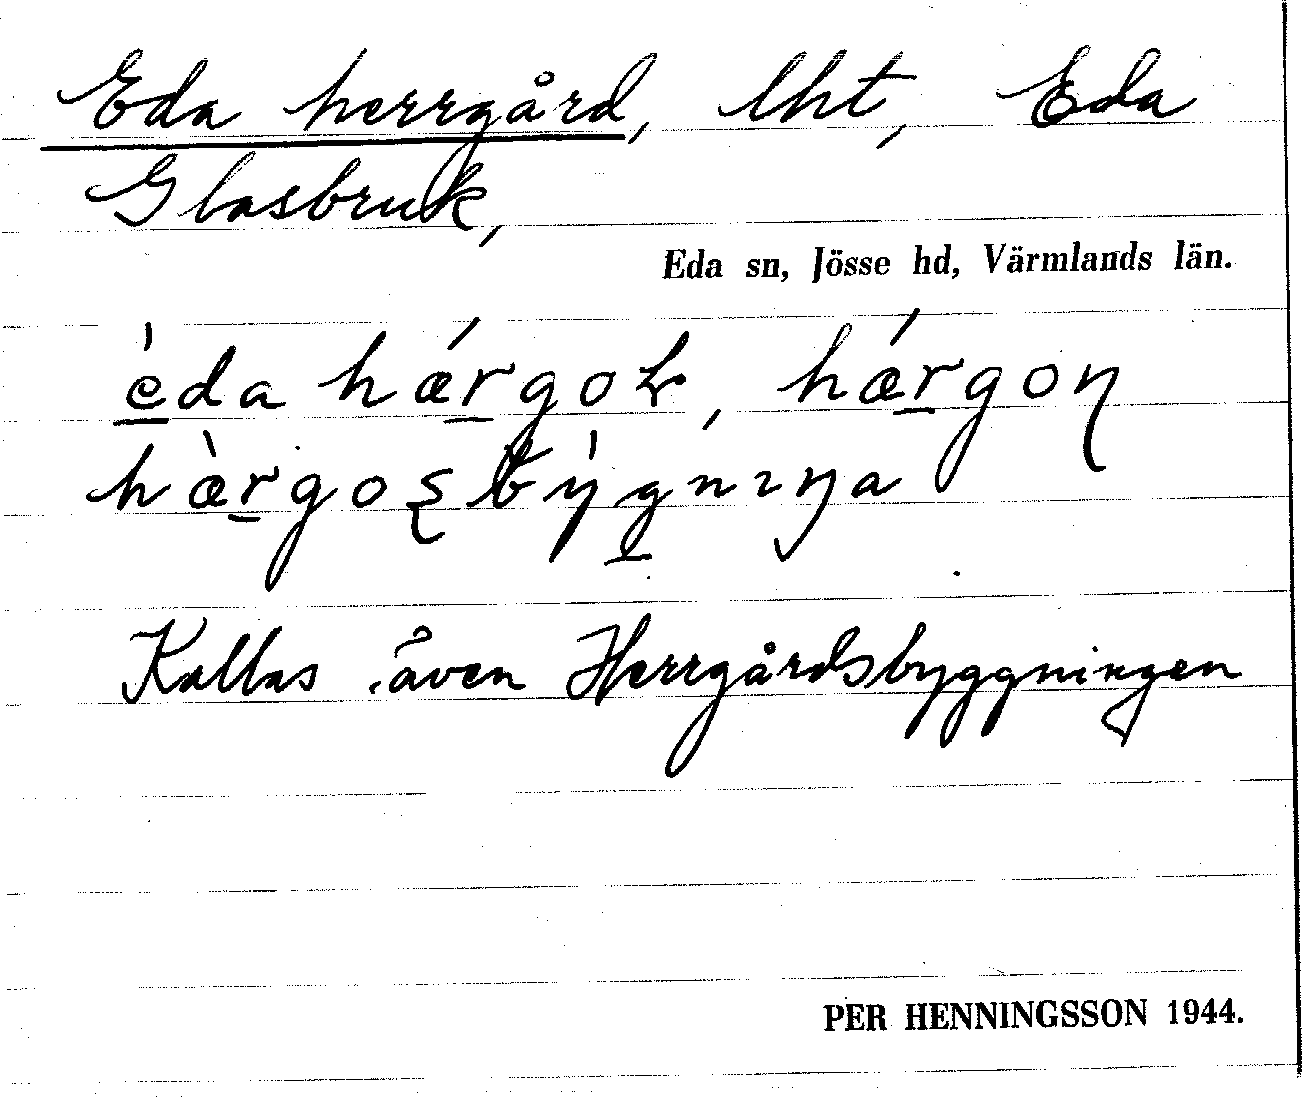 Eda herrgård, lht, Eda
Glasbruk,
Eda sn, Jösse hd, Värmlands län.
èda hǽrgoɫ, hǽrgoɳ
hæ̀rgoʂbýgnɪŋa
Kallas även Herrgårdsbyggningen
PER HENNINGSSON 1944.